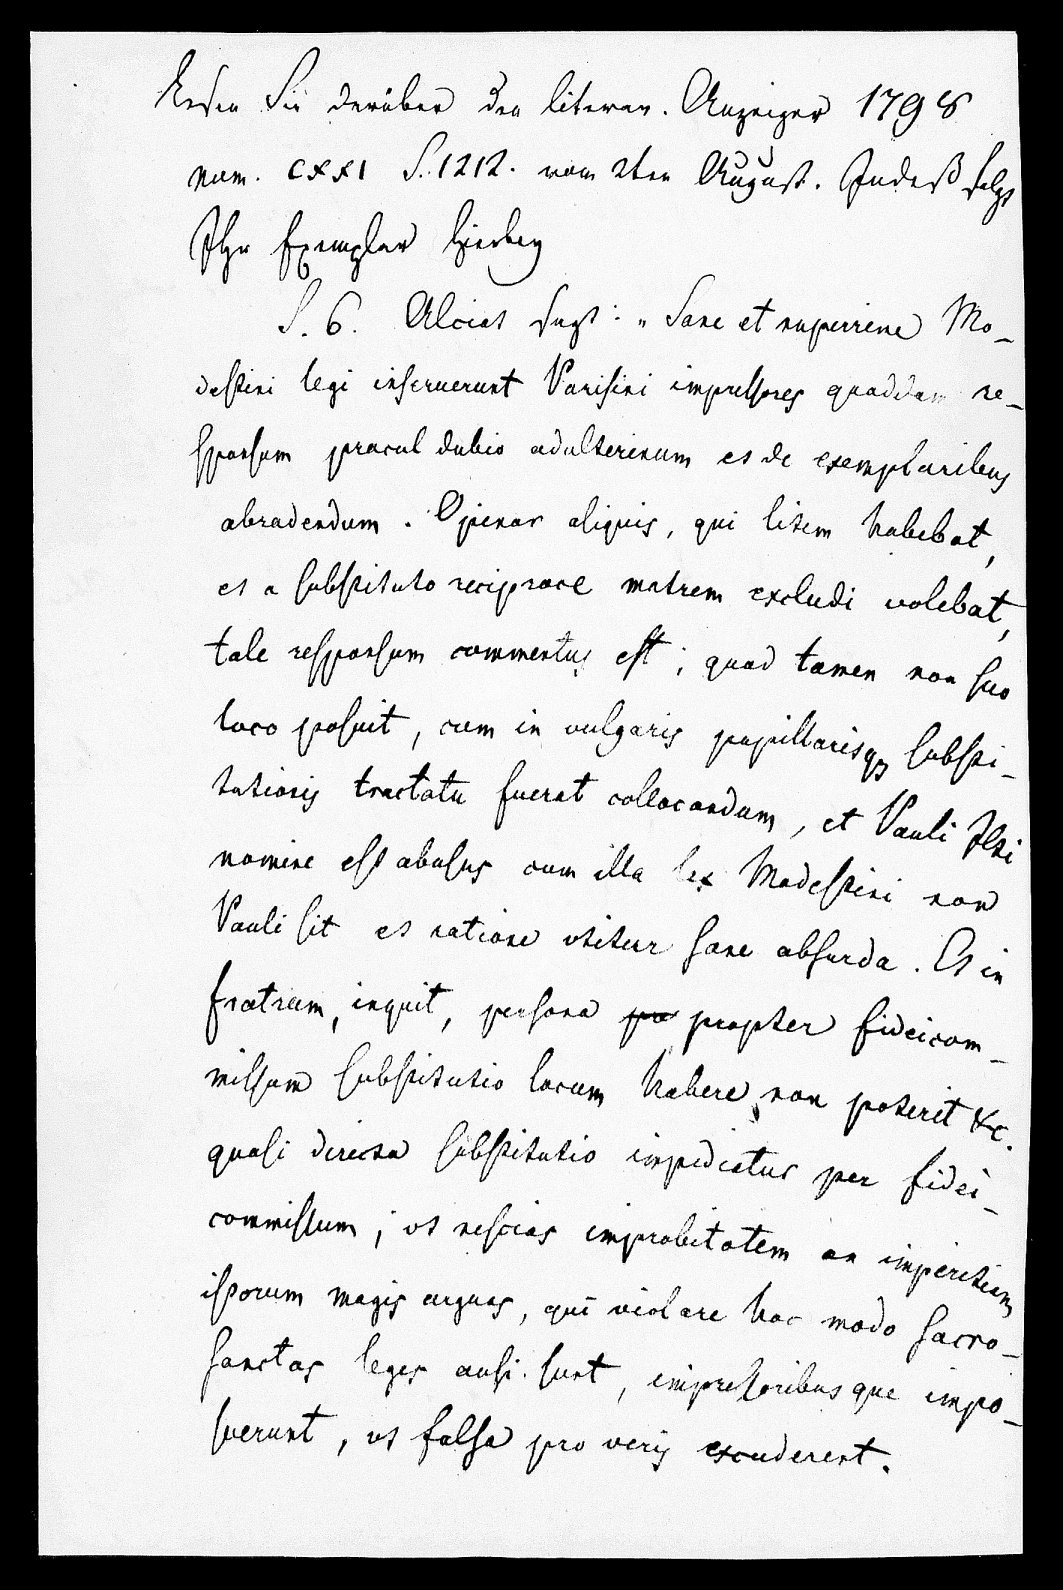 Lesen Sie darüber den literar. Anzeiger 1798
num. CXXI S. 1212. vom 2ten August. Indeß folgt
Ihr Exemplar hierbey
S. 6. Alciat sagt: „Sane et nuperrime Mo-
destini legi inseruerunt Parisini impressores quoddam re-
sponsum procul dubio adulterinum et de exemplaribus
abradendum. Opinor aliquis, qui litem habebat,
et a substituto reciproce matrem excludi volebat,
tale responsum commentus est; quod tamen non suo
loco posuit, cum in vulgaris pupillarisq3 substi-
tutionis tractatu fuerat collocandum, et Pauli Icti
nomine est abusus cum illa lex Modestini non
Pauli sit et ratione utitur sane absurda. Et in
fratrum, inquit, persona pro propter fideicom-
missum substitutio locum habere non poterit &c.
quasi directa substitutio impediatur per fidei-
commissum; ut nescias improbitatem an imperitiam
istorum magis arguas, qui violare hoc modo sacro-
sanctas leges ausi sunt, impressoribusque impo-
suerunt, ut falsa pro veris excuderent.